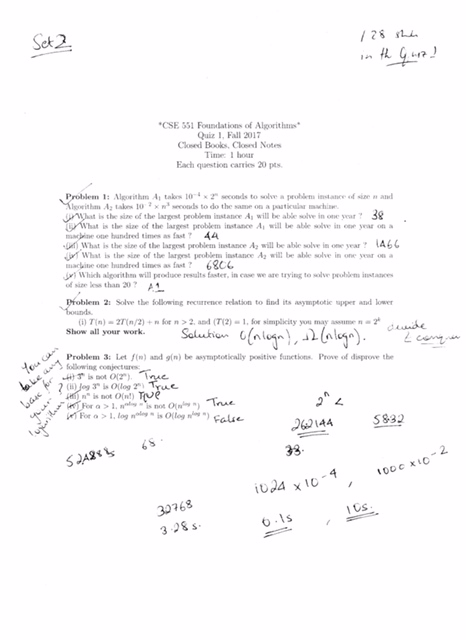 Set 2
128
in th Quiz 1
*CSE 551 Foundations of Algorithms*
Quiz 1, Fall 2017
Closed Books, Closed Notes
Time: 1 hour
Each question carries 20 pts.
Problem 1: Algorithm A1 takes 10^-4 × 2^n seconds to solve a problem instance of size n and
Algorithm A2 takes 10^-2 × n^3 seconds to do the same on a particular machine.
(i) What is the size of the largest problem instance A1 will be able solve in one year ? 38
(ii) What is the size of the largest problem instance A1 will be able solve in one year on a
machine one hundred times as fast ? 44
(iii) What is the size of the largest problem instance A2 will be able solve in one year ? 1466
(iv) What is the size of the largest problem instance A2 will be able solve in one year on a
machine one hundred times as fast ? 6806
(v) Which algorithm will produce results faster, in case we are trying to solve problem instances
of size less than 20 ? A1
Problem 2: Solve the following recurrence relation to find its asymptotic upper and lower
bounds.
(i) T(n) = 2T(n/2) + n for n > 2, and (T(2) = 1, for simplicity you may assume n = 2^k
Show all your work. Solution O(nlogn), Ω(nlogn).
divide
& conquer
Problem 3: Let f(n) and g(n) be asymptotically positive functions. Prove of disprove the
following conjectures:
(i) 3^n is not O(2^n). True
(ii) log 3^n is O(log 2^n) True
(iii) n^n is not O(n!) True
(iv) For α > 1, n^αlog n is not O(n^log n) True
(v) For α > 1, log n^αlog n is O(log n^log n) False
You can
take any
base for
your
logarithm
2^n <
262144 5832
524288
68.
38.
1024 × 10^-4 , 1000 × 10^-2
32768
3.28s.
0.1s , 10s.